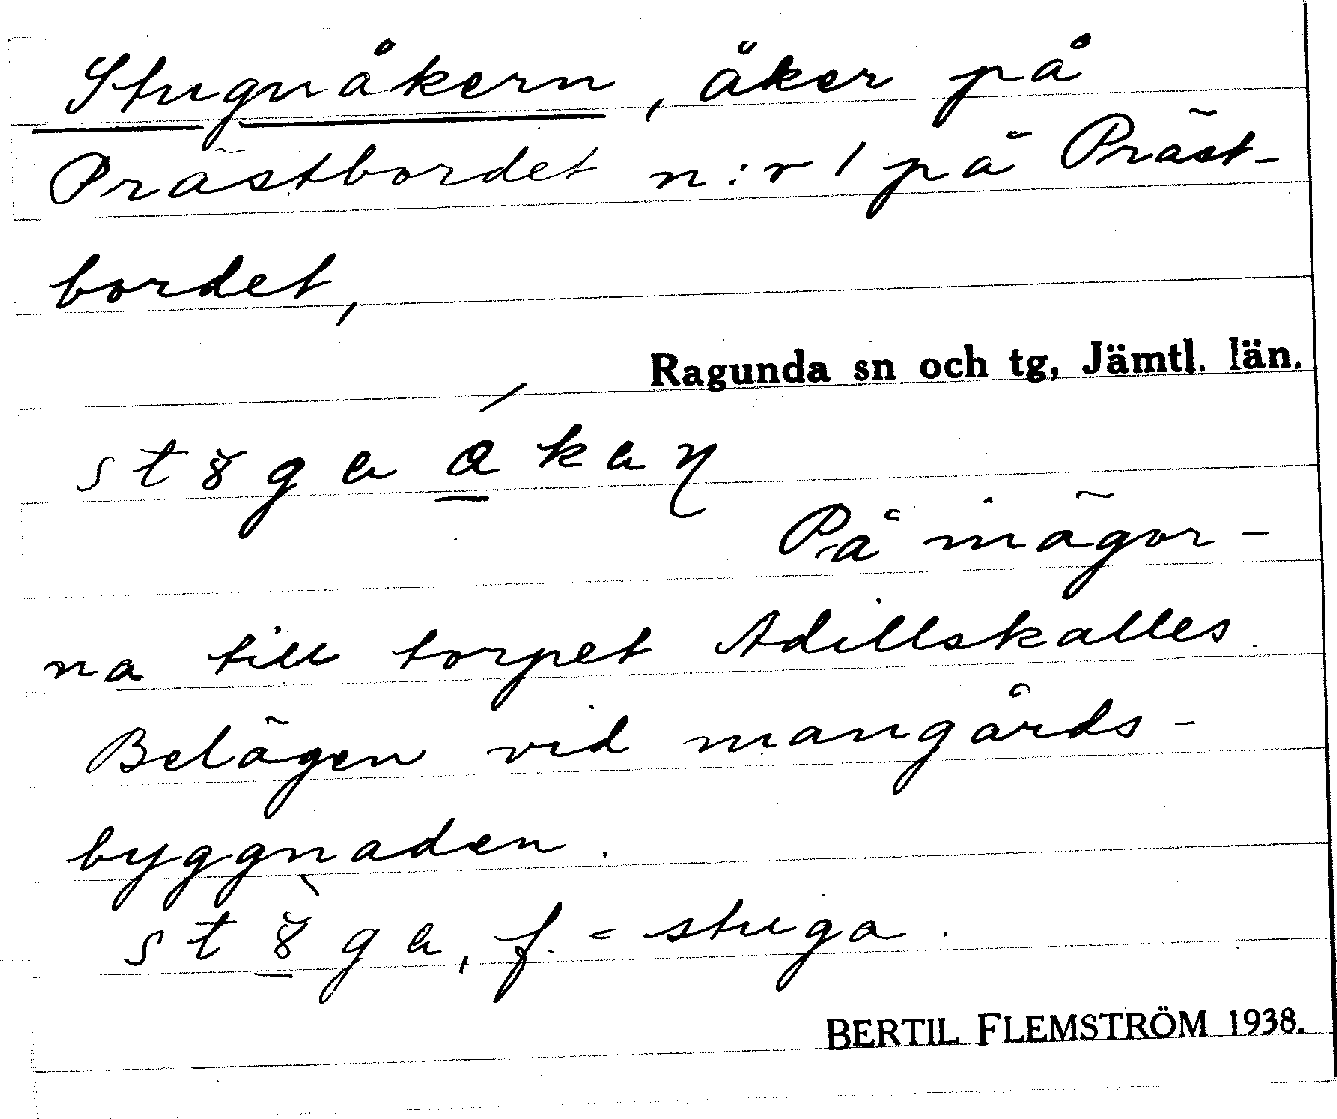 Stugnåkern, åker på
Prästbordet n:r 1 på Präst-
bordet,
Ragunda sn och tg, Jämtl. län.
På inägor-
na till torpet Adillskalles.
Belägen vid mangårds-
byggnaden.
f. = stuga.
BERTIL FLEMSTRÖM 1938.